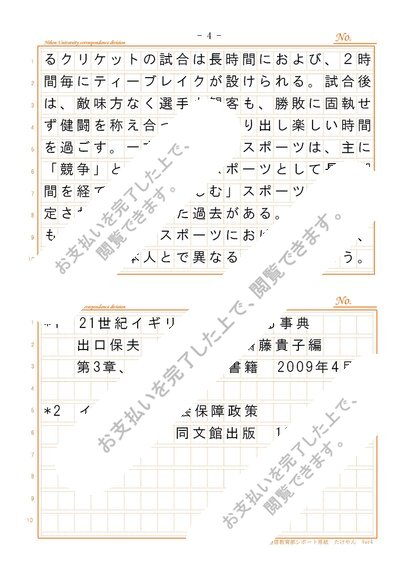 - 4 -
Nihon University correspondence division
No.
るクリケットの試合は長時間におよび、2時
間毎にティーブレイクが設けられる。試合後
は、敵味方なく選手 観客も、勝敗に固執せ
ず健闘を称え合 り出し楽しい時間
を過ごす。一 スポーツは、主に
「競争」と スポーツとして
間を経て む」スポーツ
定さ た過去がある。
も スポーツにお
人とで異なる う。
お支払いを完了した上で、
閲覧できます。
お支払いを完了した上で、閲覧できます。
correspondence division
No.
*1 21世紀イギリ 事典
出口保夫 齋藤貴子編
第3章、 書籍 2009年4月
*2 イ 保障政策
同文館出版
お支払いを完了した上で、
閲覧できます。
Ver4